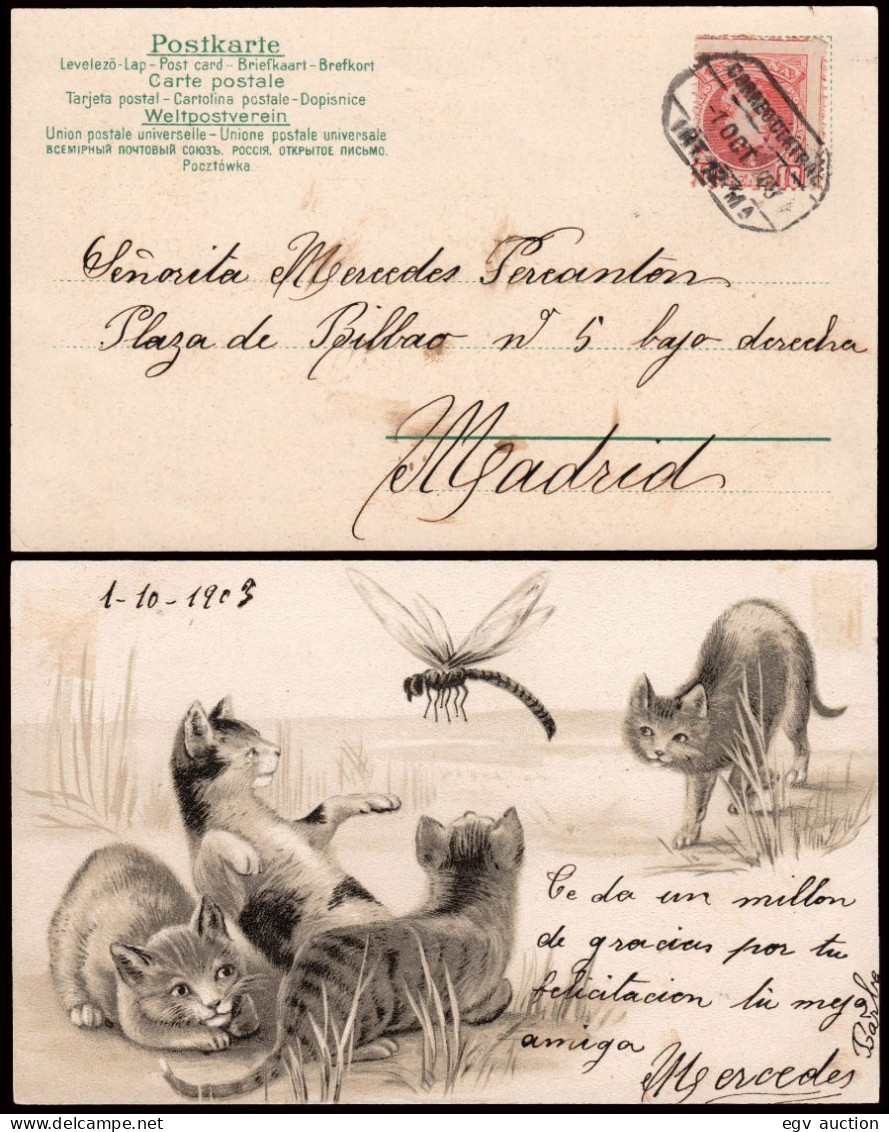 Postkarte
Levelező-Lap - Post card - Briefkaart - Brefkort
Carte postale
Tarjeta postal - Cartolina postale - Dopisnice
Weltpostverein
Union postale universelle - Unione postale universale
ВСЕМІРНЫЙ ПОЧТОВЫЙ СОЮЗЪ. РОССІЯ. ОТКРЫТОЕ ПИСЬМО.
Pocztówka.
1 OCT 03
Señorita Mercedes Percanton
Plaza de Bilbao nº 5 bajo derecha
Madrid
1-10-1903
Te da un millon
de gracias por tu
felicitacion tu mejo
amiga
Mercedes
egv auction